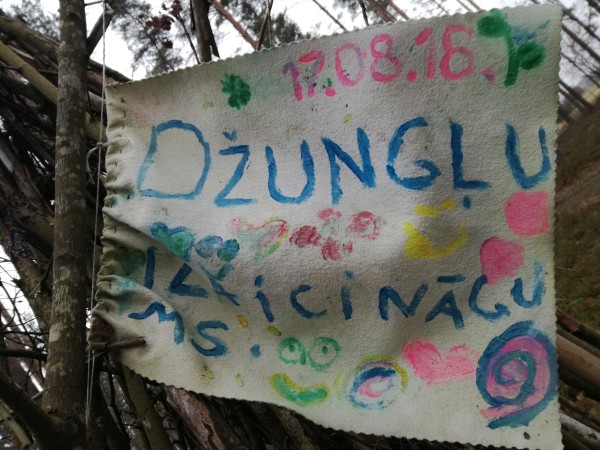 17.08.18.
DŽUNGĻU
IZAiCiNĀJU
MS.